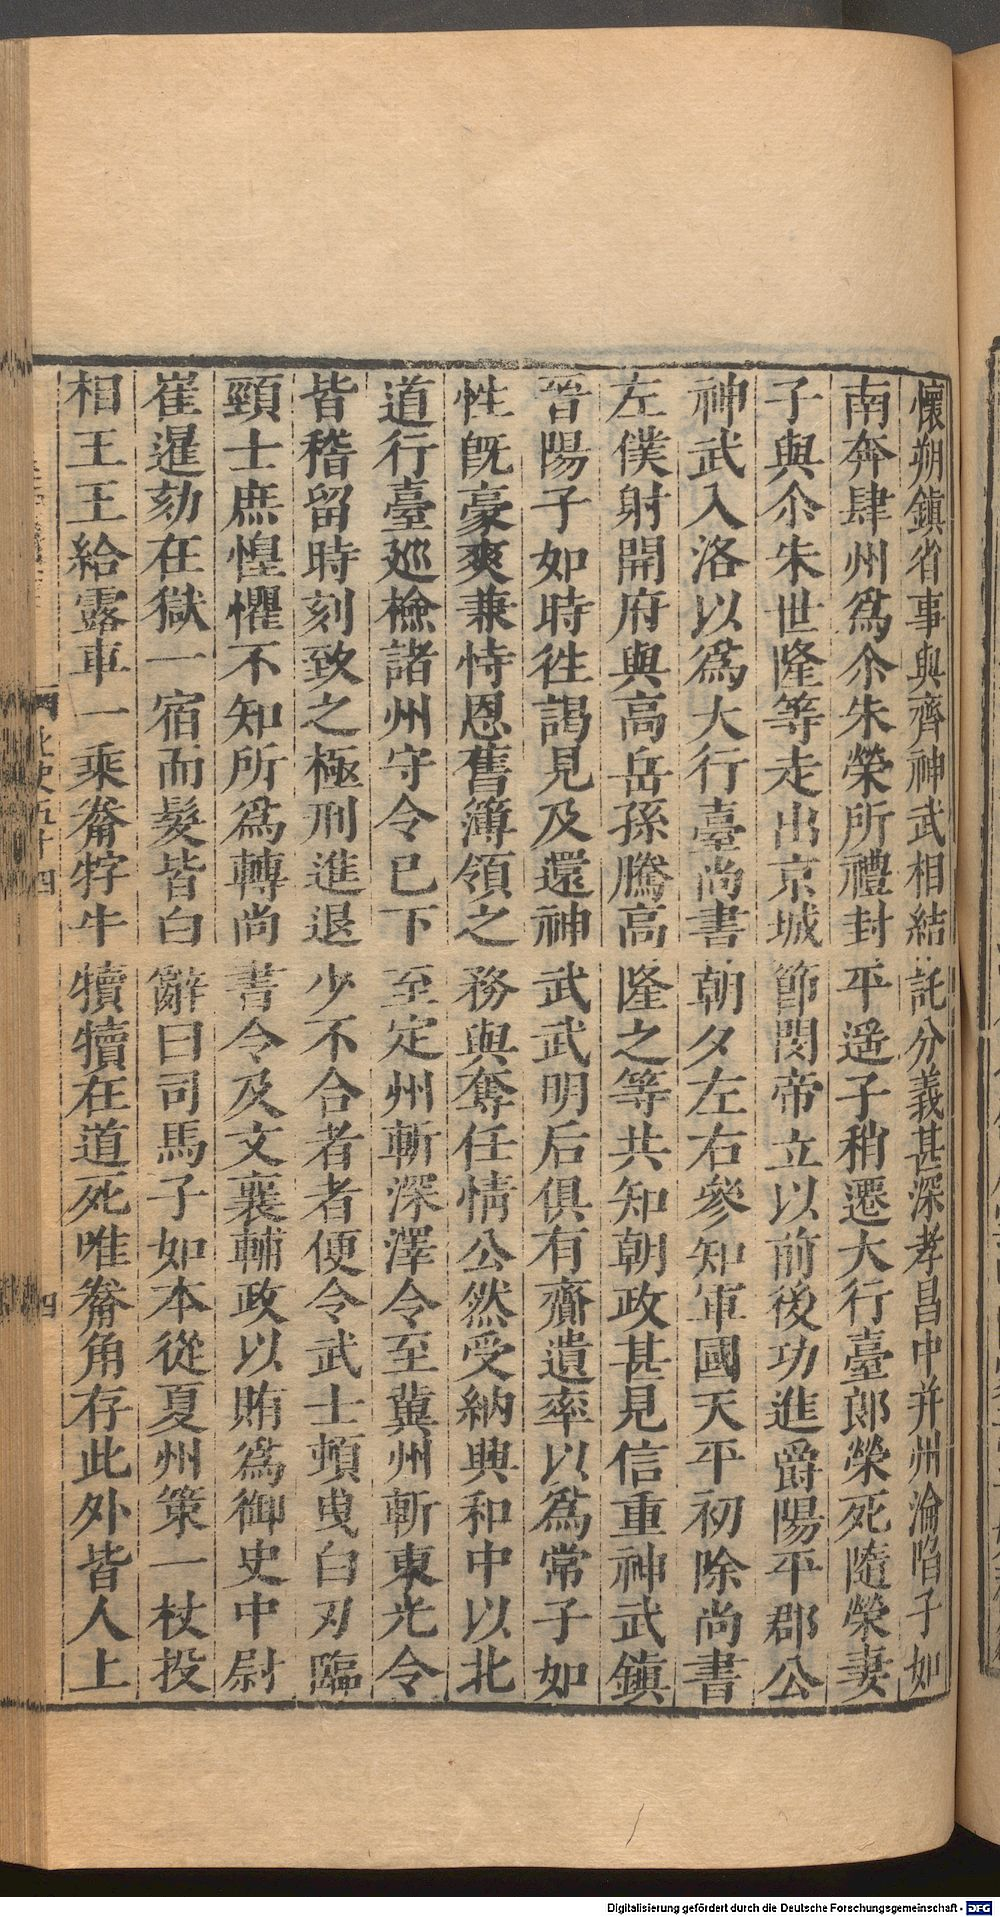 懷朔鎮省事與齊神武相結託分義甚深孝昌中并州淪陷子如
南奔肆州爲尒朱榮所禮封平遥子稍遷大行臺郎榮死隨榮妻
子與尒朱世隆等走出京城節閔帝立以前後功進爵陽平郡公
神武入洛以爲大行臺尚書朝夕左右參知軍國天平初除尚書
左僕射開府與高岳孫騰高隆之等共知朝政甚見信重神武鎮
晉陽子如時徃謁見及還神武武明后俱有齎遺率以爲常子如
性旣豪爽兼恃恩舊簿領之務與奪任情公然受納興和中以北
道行臺廵檢諸州守令已下至定州斬深澤令至冀州斬東光令
皆稽留時刻致之極刑進退少不合者者便令武士頓曳白刃臨
頸士庶惶懼不知所爲轉尚書令及文襄輔政以賄爲御史中尉
崔暹劾在獄一宿而髮皆白辭曰司馬子如本從夏州策一杖投
相王王給露車一乘觠牸牛犢犢在道死唯觠角存此外皆人上
北史五十四
四
Digitalisierung gefördert durch die Deutsche Forschungsgemeinschaft - DFG